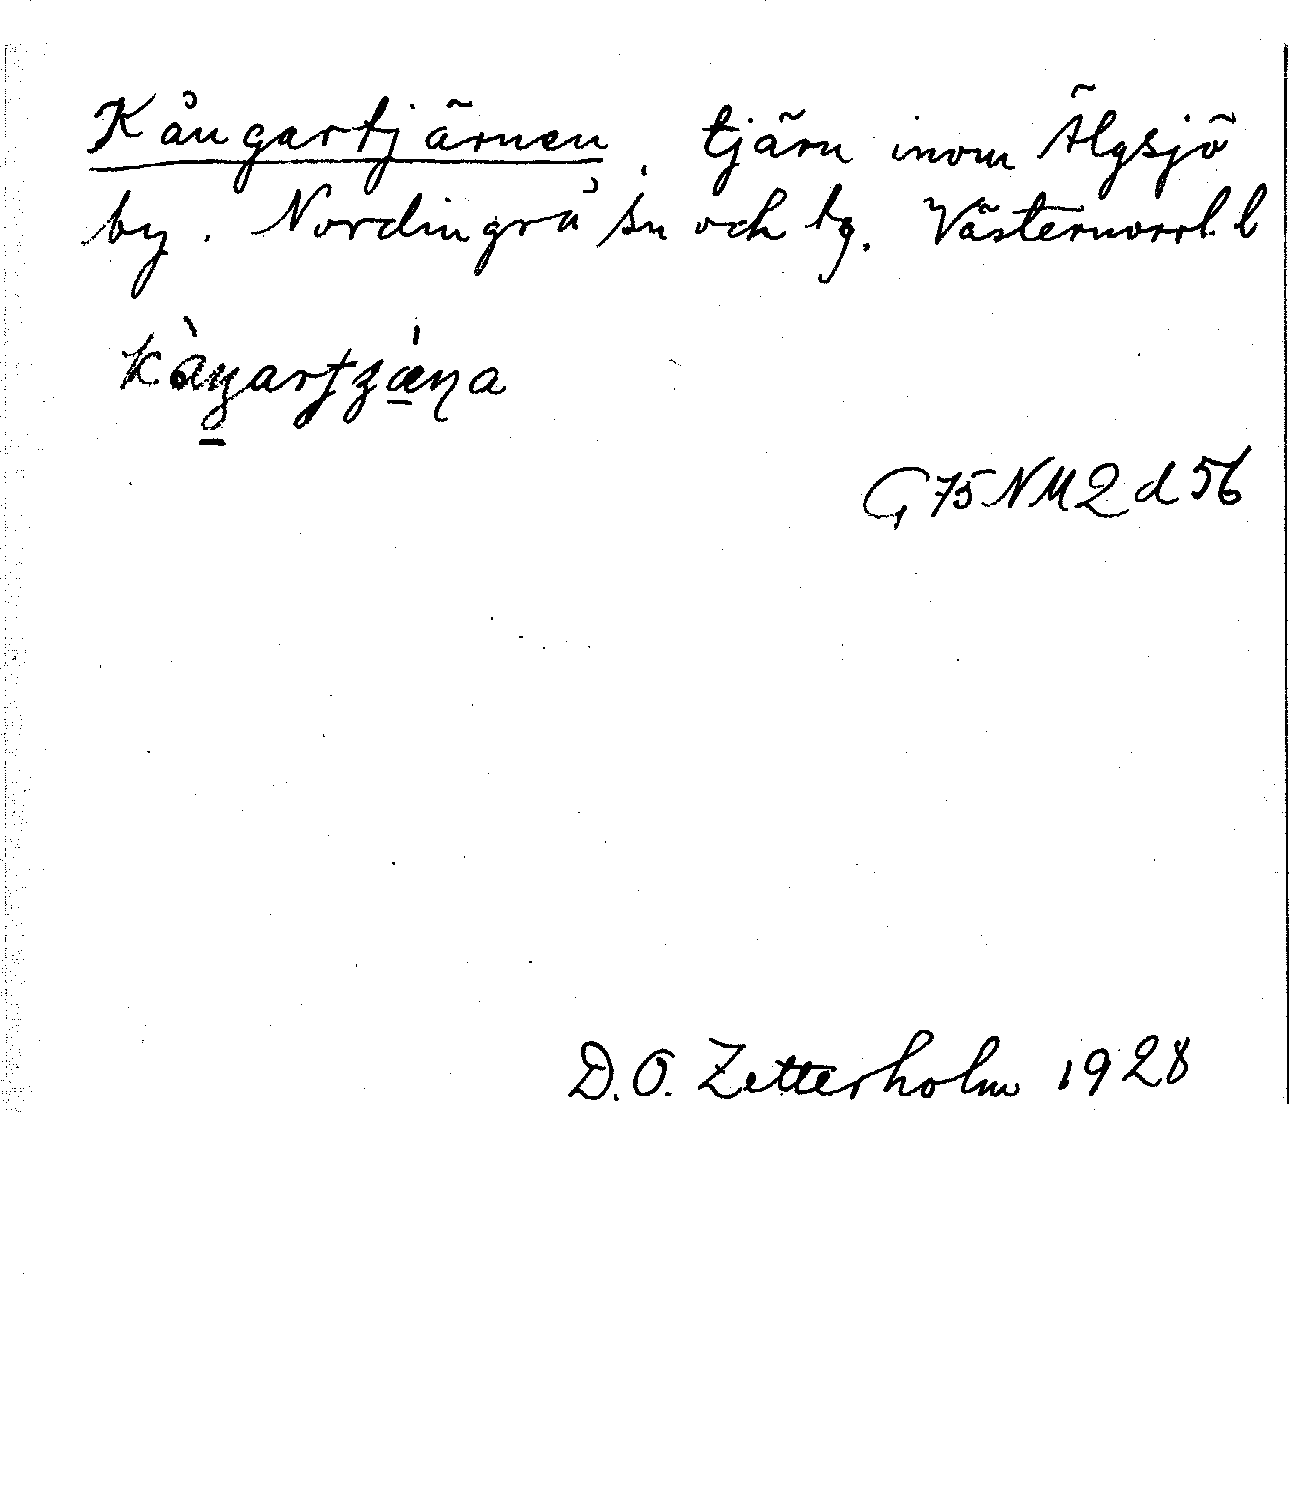 Kångartjärnen, tjärn inom Älgsjö
by. Nordingrå sn och tg. Västernorrl. l
G 75 NM 2 d 56
D. O. Zetterholm 1928